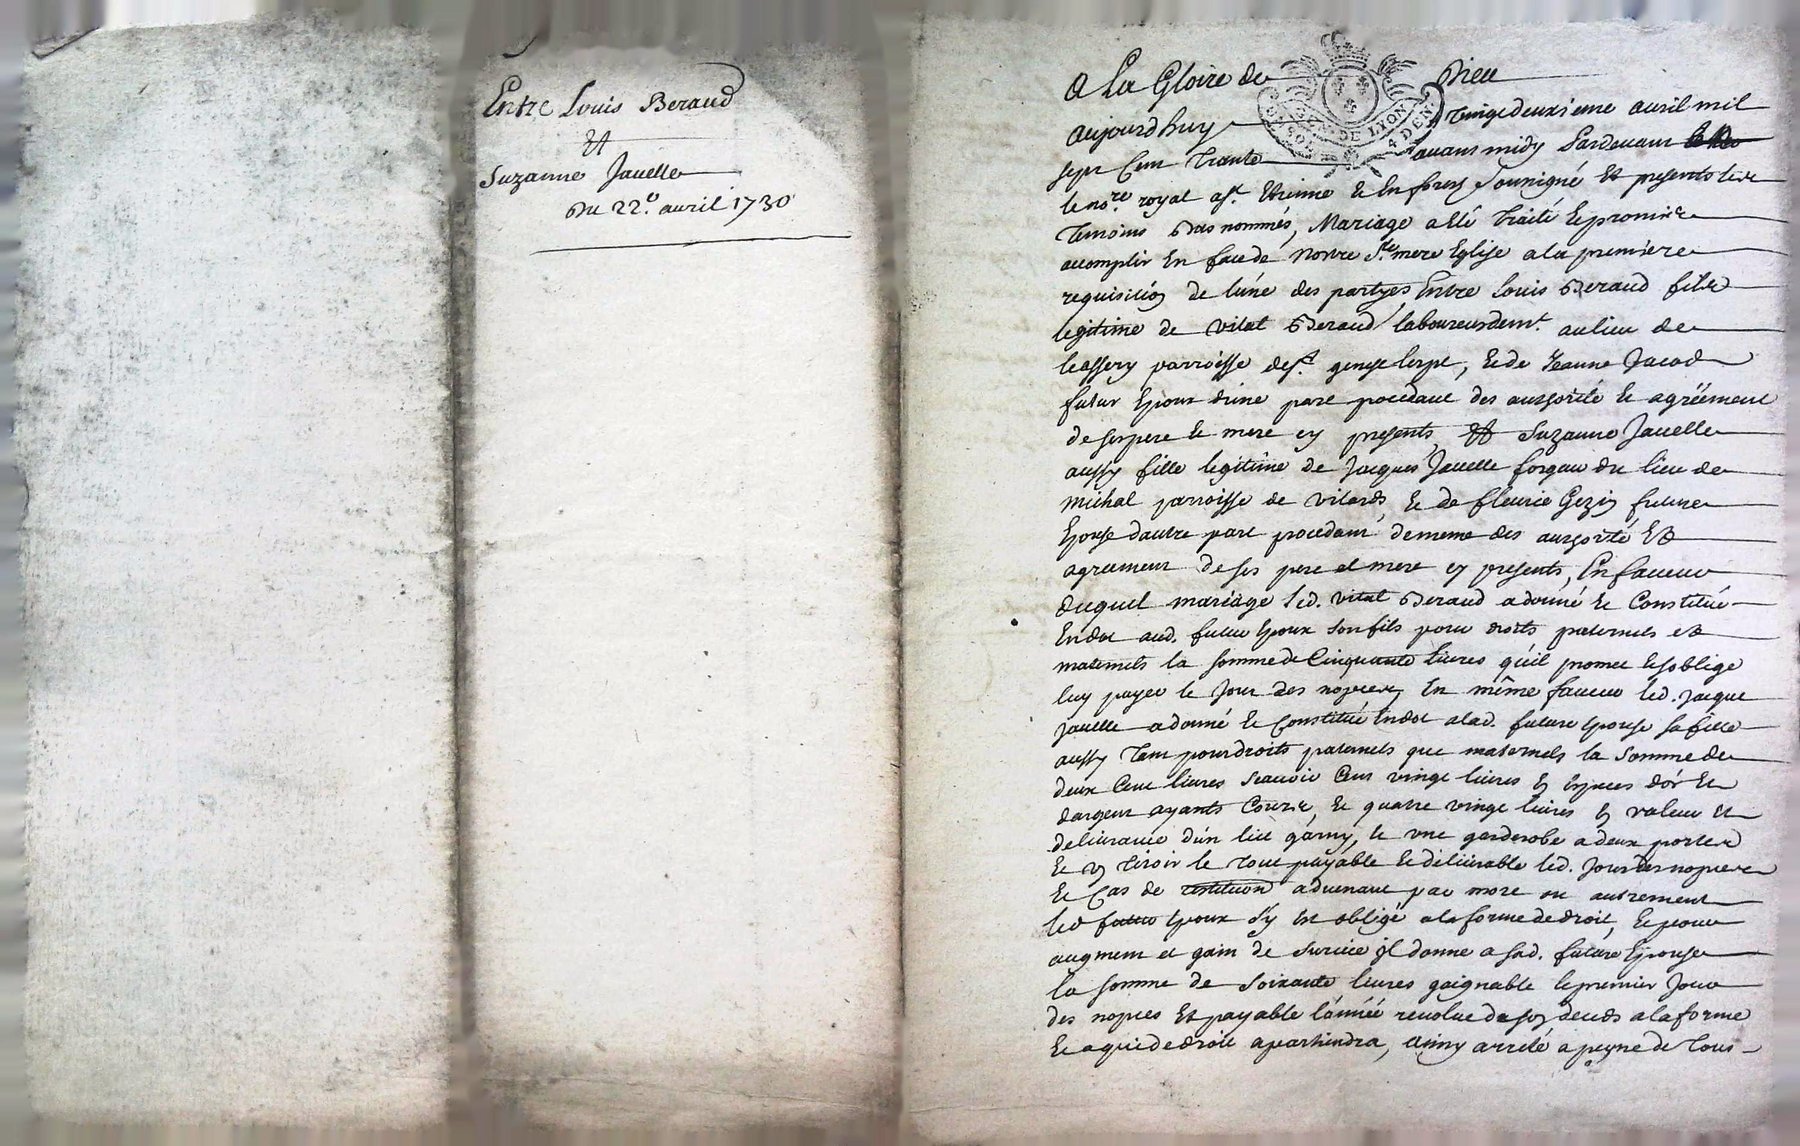 Entre Louis Beraud
Et
Suzanne Jauelle
Du 22.e auril 1730
A La Gloire de Dieu
GEN. DE LYON
Aujourdhuy vingtdeuxieme auril mil
sept Cent Trante auant midy Pardeuant
le no.re royal a St. Etienne & En forest soussigné Et presents les
temoins Bas nommés, Mariage a Eté traité & promis
accomplir En face de Nottre Ste. mere Eglise a la premiere
requisition de l'une des partyes Entre Louis Beraud fils
legitime de vital Beraud laboureur demt. au lieu de
parroisse de St. genest lerpt, & de Jeanne Jacod
futur Epoux d'une part procedant des authorité & agréement
de ses pere & mere cy presents, Et Suzanne Jauelle
aussy fille legitime de Jacques Jauelle forgeur du lieu de
michal parroisse de vilards, & de fleurie Gezin future
Epouse d'autre part procedant de meme des authorité Et
agreement de ses pere et mere cy presents, En faueur
duquel mariage led. vital Beraud a donné & Constitué
En dot aud. futur Epoux son fils pour droits paternels et
maternels la somme de Cinquante liures qu'il promet & s'oblige
luy payer le Jour des nopces, En même faueur led. Jacque
Jauelle a donné & Constitué En dot a lad. future Epouse sa fille
aussy Tant pour droits paternels que maternels la somme de
deux Cent liures scauoir Cent vingt liures En Especes d'or &
d'argent ayants Cours, & quatre vingt liures En valeur &
deliurance d'un lict garny, & une garderobe a deux portes
& un Tiroir le tout payable & deliurable led. Jour des nopces
& Cas de restitution aduenant par mort ou autrement
led futur Epoux s'y Est obligé a la forme de droit, & pour
augment et gain de suruie Il donne a sad. future Epouse
la somme de soixante liures gaignable le premier Jour
des nopces Et payable l'année reuolue du son deceds a la forme
& a qui de droit apartiendra, Ainsy arreté a peyne de Tous